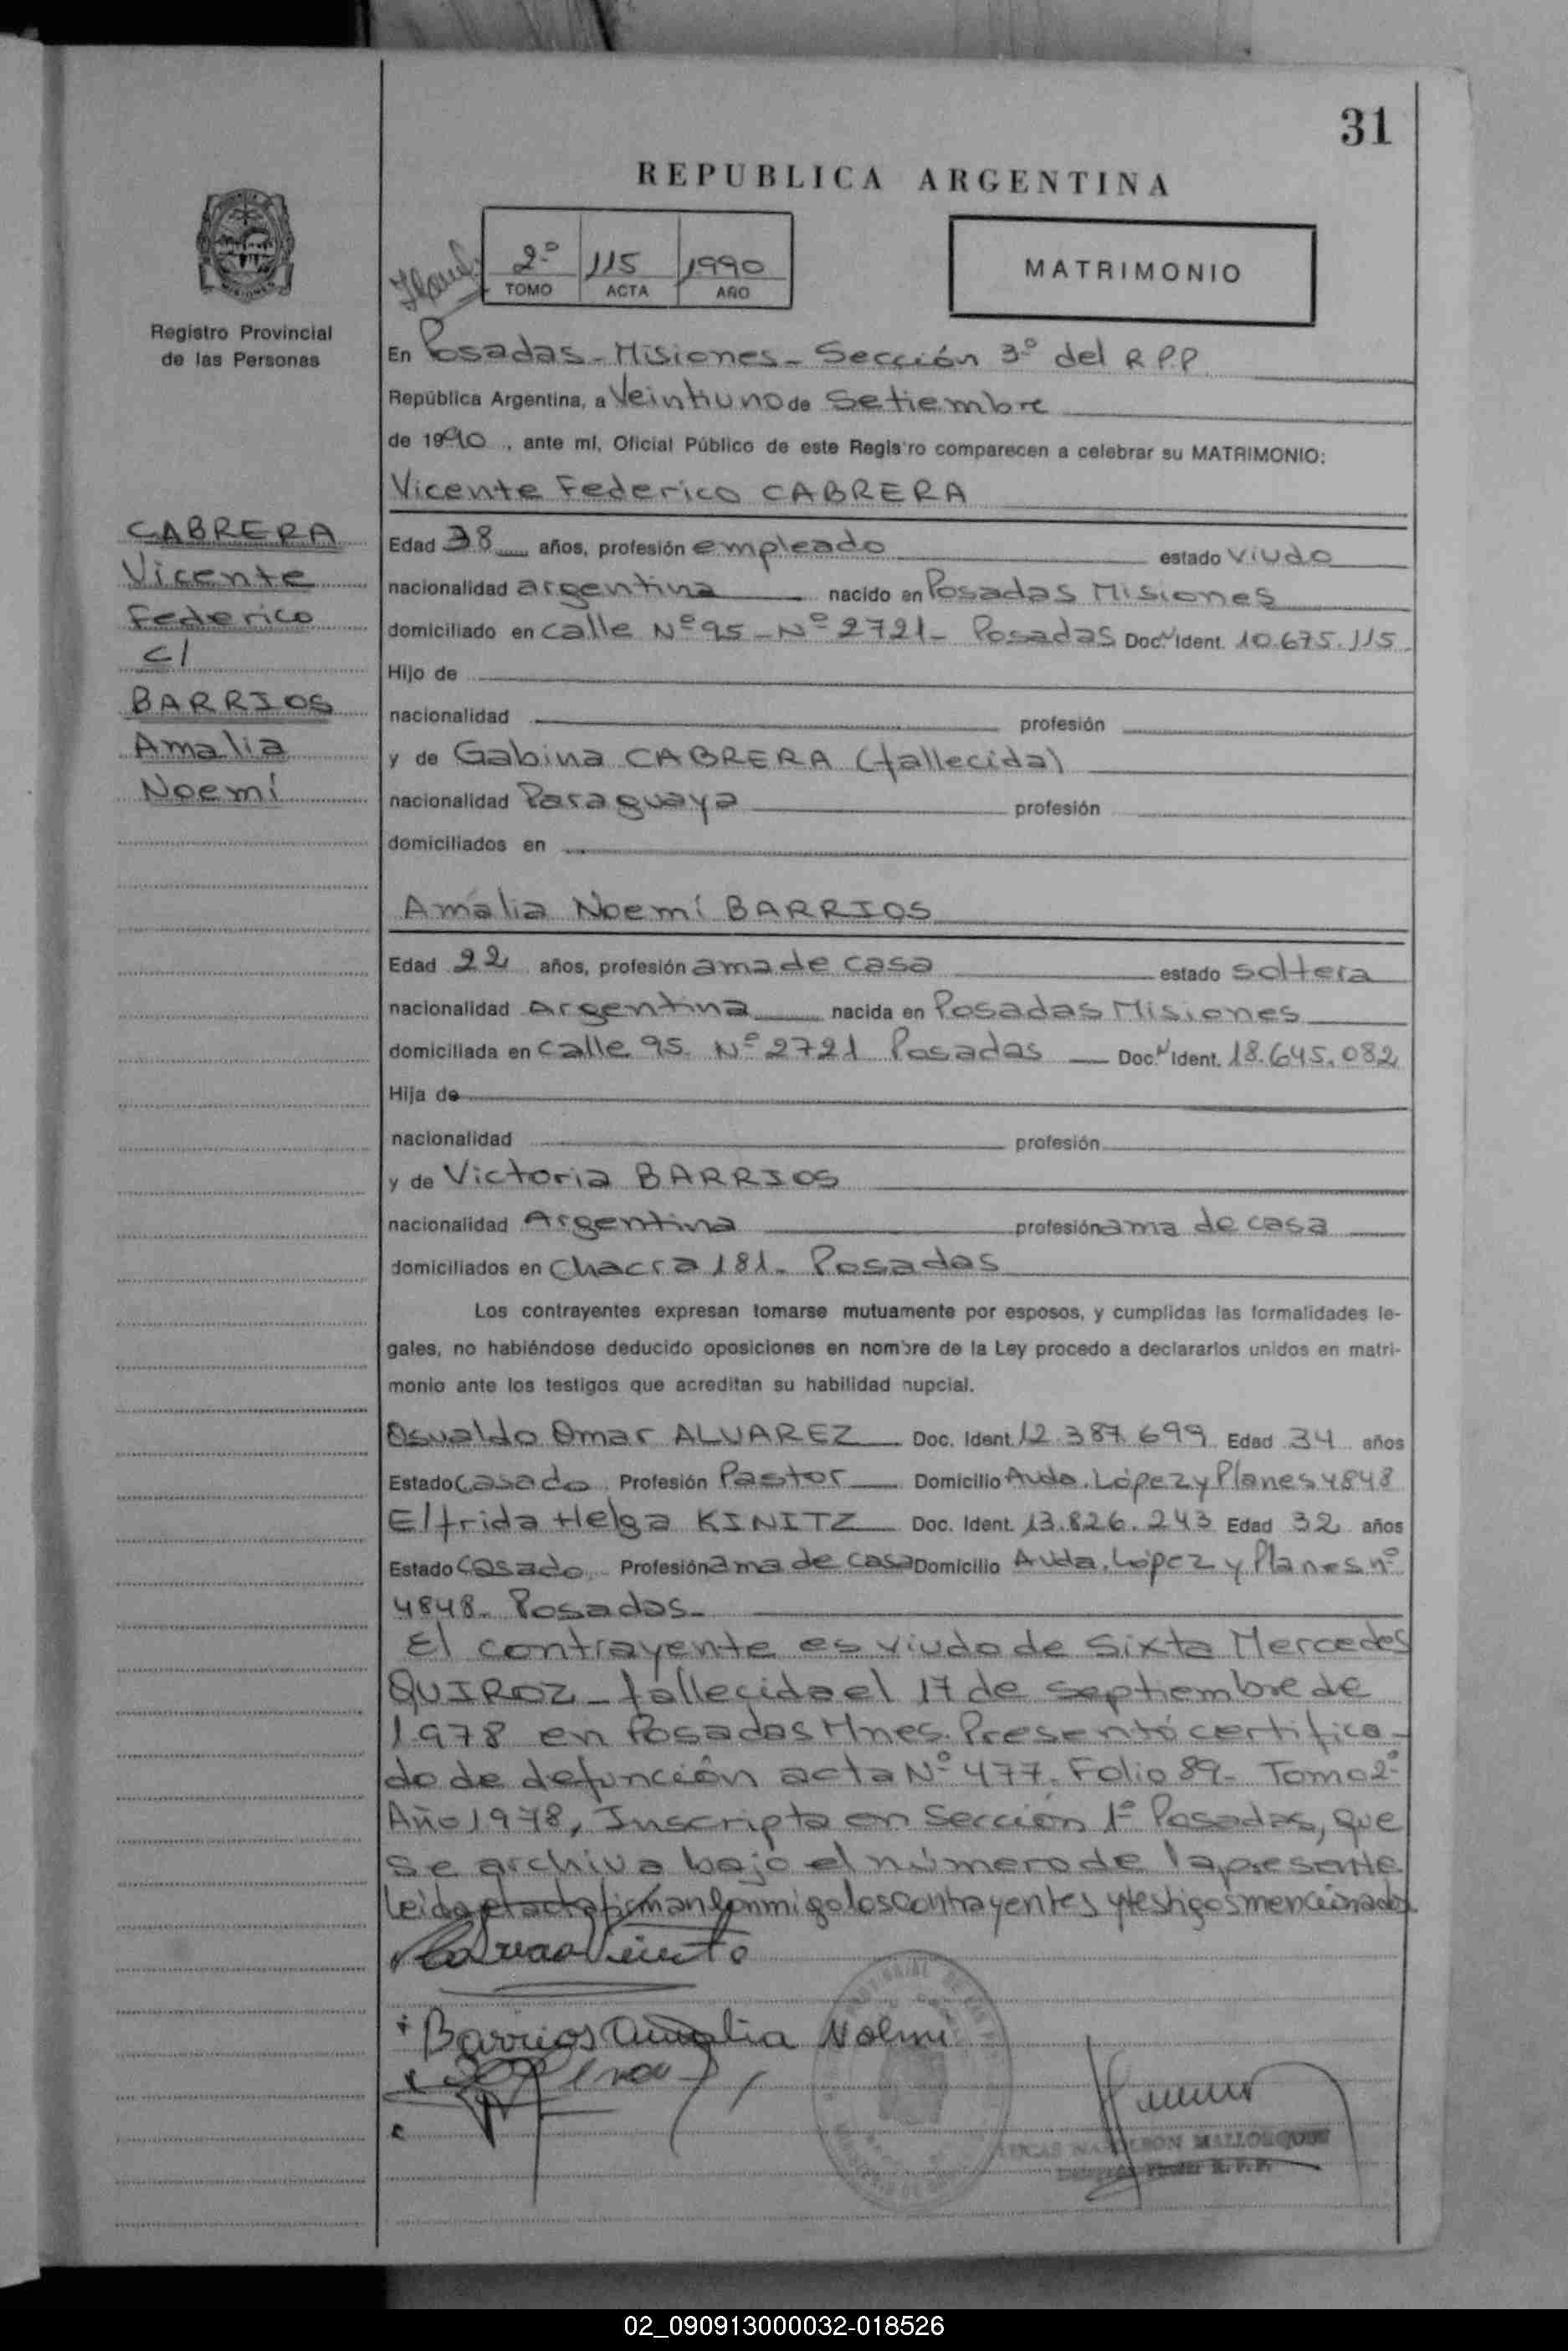 31
REPUBLICA ARGENTINA
2º 115 1990
TOMO ACTA AÑO
MATRIMONIO
Registro Provincial
de las Personas
En Posadas - Misiones - Sección 3º del R.P.P.
República Argentina, a Veintiuno de Setiembre
de 1990, ante mí, Oficial Público de este Registro comparecen a celebrar su MATRIMONIO:
Vicente Federico CABRERA
CABRERA
Vicente
Federico
c/
BARRIOS
Amalia
Noemí
Edad 38 años, profesión empleado estado viudo
nacionalidad argentina nacido en Posadas Misiones
domiciliado en calle Nº 95 - Nº 2721 - Posadas Doc. Ident. 10.675.115
Hijo de
nacionalidad profesión
y de Gabina CABRERA (fallecida)
nacionalidad Paraguaya profesión
domiciliados en
Amalia Noemí BARRIOS
Edad 22 años, profesión ama de casa estado soltera
nacionalidad Argentina nacida en Posadas Misiones
domiciliada en calle 95 Nº 2721 Posadas Doc. Ident. 18.645.082
Hija de
nacionalidad profesión
y de Victoria BARRIOS
nacionalidad Argentina profesión ama de casa
domiciliados en Chacra 181. Posadas
Los contrayentes expresan tomarse mutuamente por esposos, y cumplidas las formalidades le-
gales, no habiéndose deducido oposiciones en nombre de la Ley procedo a declararlos unidos en matri-
monio ante los testigos que acreditan su habilidad nupcial.
Osvaldo Omar ALVAREZ Doc. Ident. 12.387.699 Edad 34 años
Estado casado Profesión Pastor Domicilio Avda. López y Planes 4848
Elfrida Helga KINITZ Doc. Ident. 13.826.243 Edad 32 años
Estado Casado Profesión ama de casa Domicilio Avda. López y Planes nº
4848 - Posadas -
El contrayente es viudo de Sixta Mercedes
QUIROZ - fallecida el 17 de septiembre de
1978 en Posadas Mnes. Presentó certifica-
do de defunción acta Nº 477. Folio 89 - Tomo 2º
Año 1978, Inscripta en Sección 1º Posadas, que
se archiva bajo el número de la presente
Leída el acta firman conmigo los contrayentes y testigos mencionados
Barrios Amalia Noemi
LUCAS NAPOLEON MALLORQUIN
R.P.P.
02_090913000032-018526